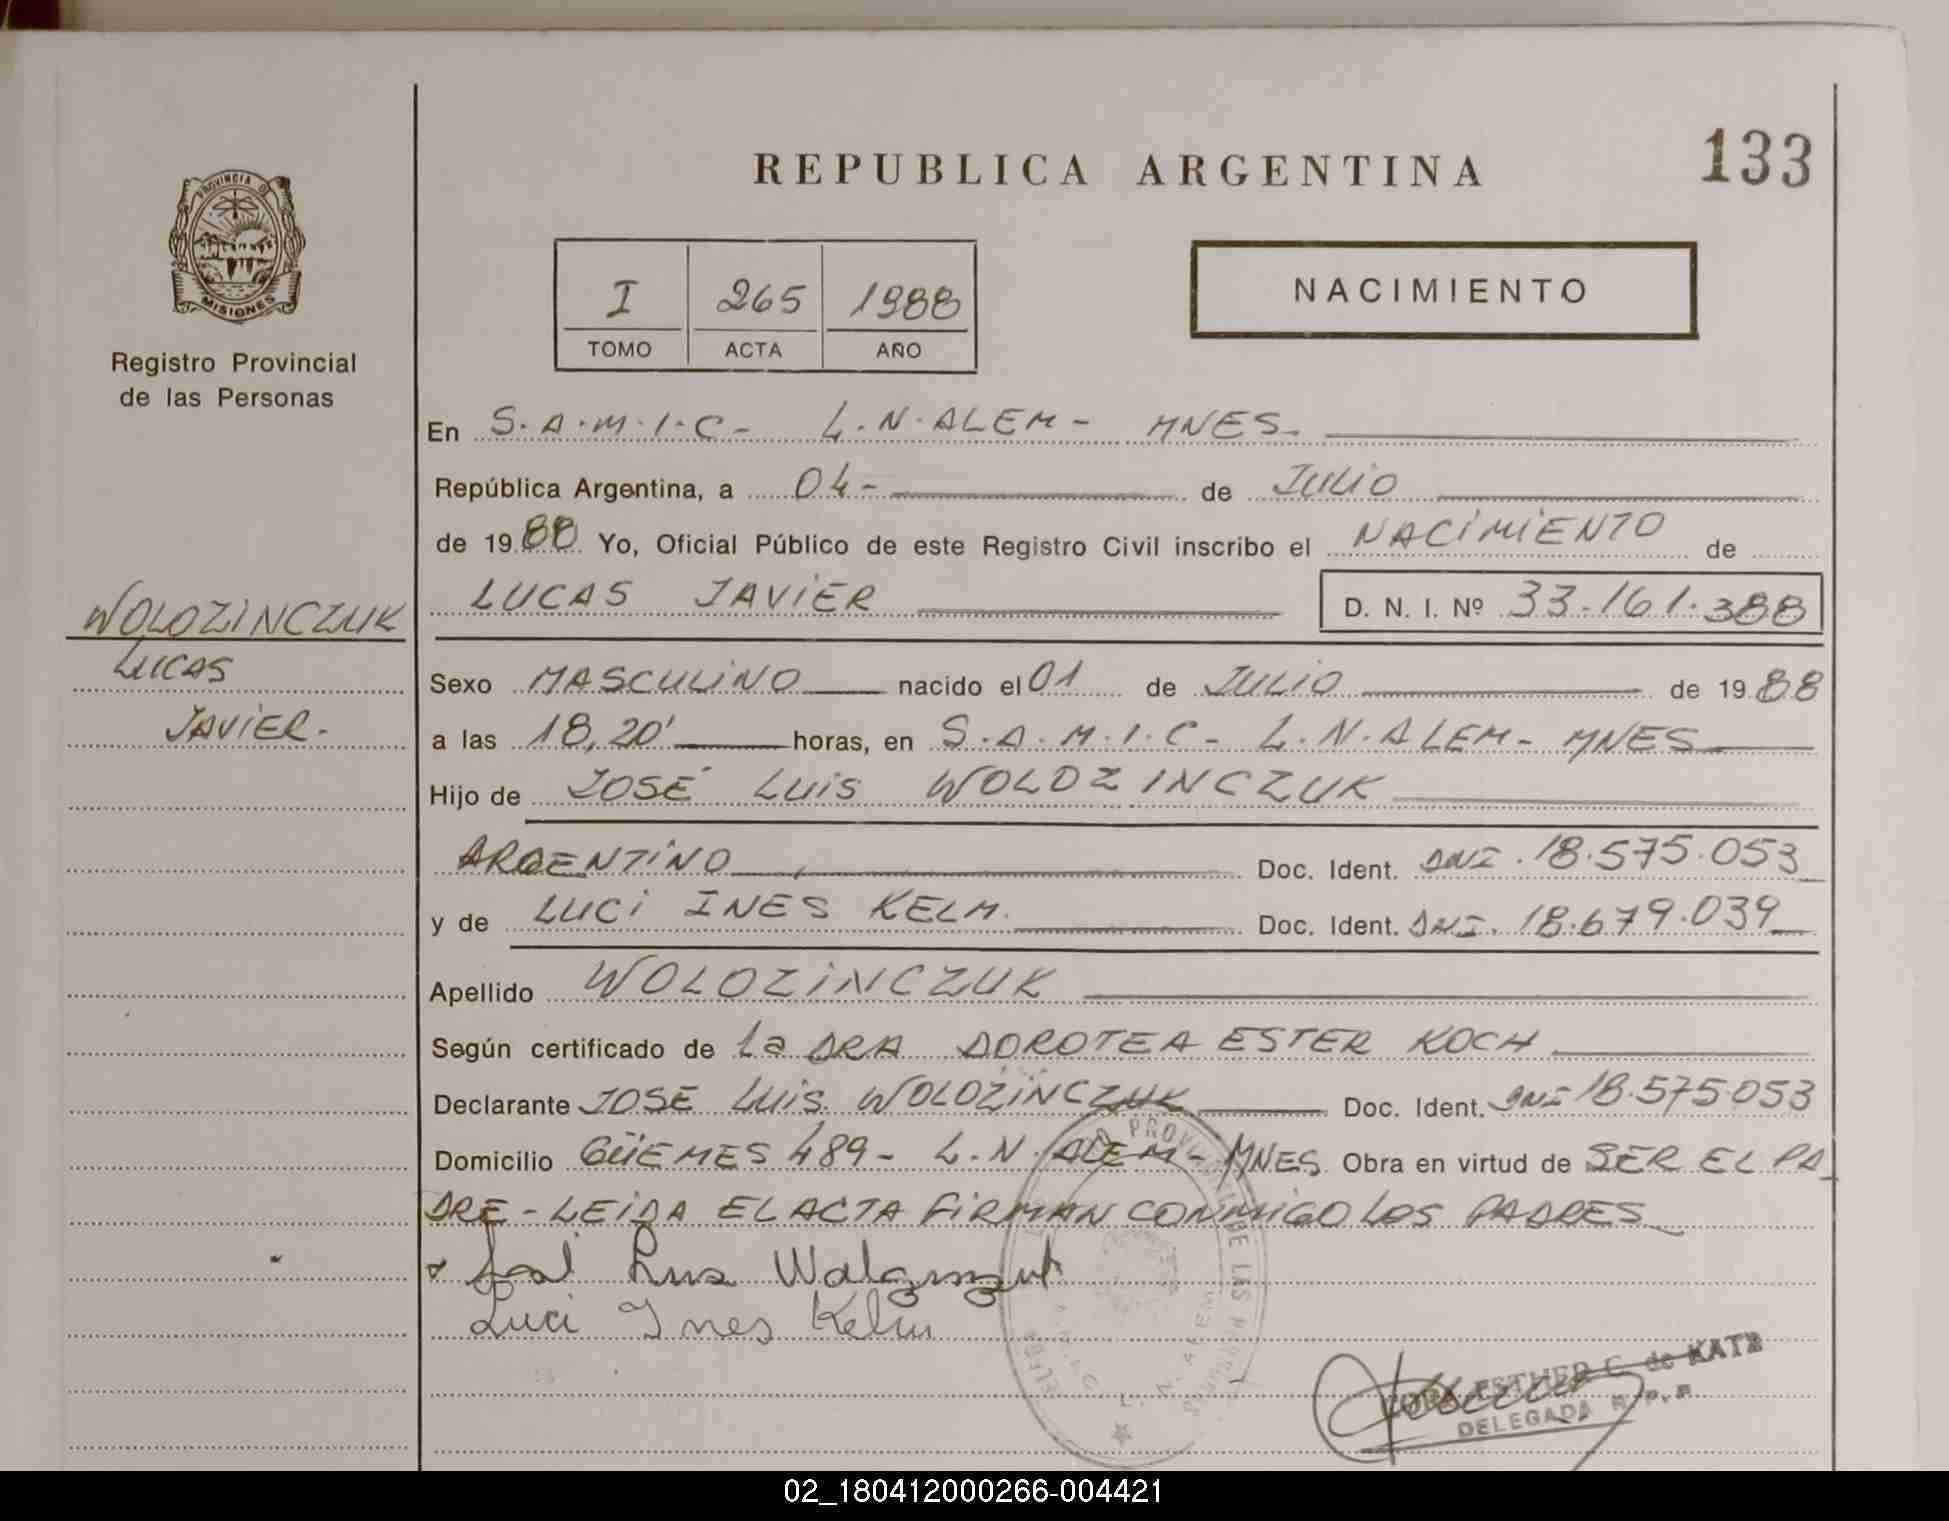 133
REPUBLICA ARGENTINA
PROVINCIA DE
MISIONES
Registro Provincial
de las Personas
I 265 1988
TOMO ACTA AÑO
NACIMIENTO
En S.A.M.I.C- L.N.ALEM- MNES-
República Argentina, a 04- de JULIO
de 1988 Yo, Oficial Público de este Registro Civil inscribo el NACIMIENTO de
LUCAS JAVIER D. N. I. Nº 33.161.388
WOLOZINCZUK
LUCAS
JAVIER.
Sexo MASCULINO nacido el 01 de JULIO de 1988
a las 18,20' horas, en S.A.M.I.C- L.N.ALEM- MNES
Hijo de JOSÉ LUIS WOLOZINCZUK
ARGENTINO Doc. Ident. DNI. 18.575.053
y de LUCI INES KELM. Doc. Ident. DNI. 18.679.039
Apellido WOLOZINCZUK
Según certificado de La DRA DOROTEA ESTER KOCH
Declarante JOSE LUIS WOLOZINCZUK Doc. Ident. DNI 18.575.053
Domicilio GÜEMES 489- L.N.ALEM- MNES Obra en virtud de SER EL PA
DRE-LEIDA EL ACTA FIRMAN CONMIGO LOS PADRES
Luci Ines Kelm
ESTHER C. de KATZ
DELEGADA R.P.P.
02_180412000266-004421